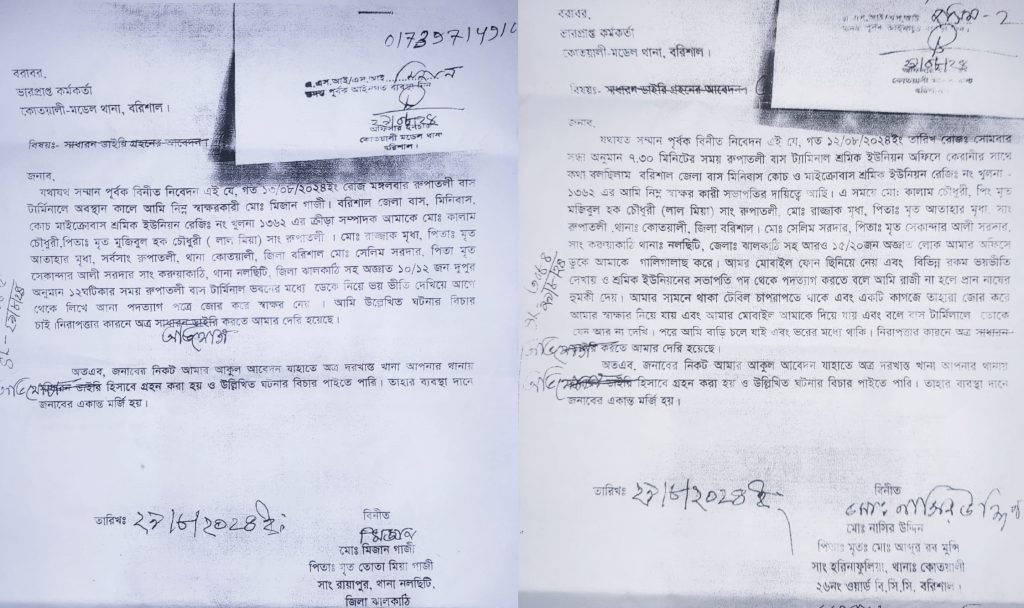 01739714910
বরাবর,
ভারপ্রাপ্ত কর্মকর্তা
কোতয়ালী-মডেল থানা, বরিশাল।
এ,এস,আই/এস,আই
পূর্বক আইনগত ব্যবস্থা নিন
অফিসার ইনচার্জ
কোতয়ালী মডেল থানা
বরিশাল।
বিষয়ঃ- সাধারন ডাইরি গ্রহনের আবেদন।
জনাব,
যথাযথ সম্মান পূর্বক বিনীত নিবেদন এই যে, গত ১৩/০৮/২০২৪ইং রোজ মঙ্গলবার রুপাতলী বাস
টার্মিনালে অবস্থান কালে আমি নিম্ন স্বাক্ষরকারী মোঃ মিজান গাজী। বরিশাল জেলা বাস, মিনিবাস,
কোচ মাইক্রোবাস শ্রমিক ইউনিয়ন রেজিঃ নং খুলনা ১৩৬২ এর ক্রীড়া সম্পাদক আমাকে মোঃ কালাম
চৌধুরী,পিতাঃ মৃত মুজিবুল হক চৌধুরী ( লাল মিয়া) সাং রুপাতলী । মোঃ রাজ্জাক মৃধা, পিতাঃ মৃত
আতাহার মৃধা, সর্বসাং রুপাতলী, থানা কোতয়ালী, জিলা বরিশাল মোঃ সেলিম সরদার, পিতা মৃত
সেকান্দার আলী সরদার সাং করুয়াকাঠি, থানা নলছিটি, জিলা ঝালকাঠি সহ অজ্ঞাত ১০/১২ জন দুপুর
অনুমান ১২ঘটিকার সময় রুপাতলী বাস টার্মিনাল ভবনের মধ্যে ডেকে নিয়ে ভয় ভীতি দেখিয়ে আগে
থেকে লিখে আনা পদত্যাগ পত্রে জোর করে স্বাক্ষর নেয় । আমি উল্লেখিত ঘটনার বিচার
চাই।নিরাপত্তার কারনে অত্র সাধারন ডাইরি করতে আমার দেরি হয়েছে।
অভিযোগ
অতএব, জনাবের নিকট আমার আকূল আবেদন যাহাতে অত্র দরখাস্ত খানা আপনার থানায়
ডাইরি হিসাবে গ্রহন করা হয় ও উল্লিখিত ঘটনার বিচার পাইতে পারি। তাহার ব্যবস্থা দানে
জনাবের একান্ত মর্জি হয়।
তারিখঃ ২৮/৮/২০২৪ ইং
বিনীত
মিজান
মোঃ মিজান গাজী
পিতাঃ মৃত তোতা মিয়া গাজী
সাং রায়াপুর, থানা নলছিটি,
জিলা ঝালকাঠি
বরাবর,
ভারপ্রাপ্ত কর্মকর্তা
কোতয়ালী-মডেল থানা, বরিশাল।
কোতয়ালী মডেল থানা
বরিশাল।
বিষয়ঃ- সাধারন ডাইরি গ্রহনের আবেদন।
জনাব,
যথাযত সম্মান পূর্বক বিনীত নিবেদন এই যে, গত ১২/০৮/২০২৪ইং তারিখ রোজঃ সোমবার
সন্ধা অনুমান ৭.৩০ মিনিটের সময় রুপাতলী বাস ট্যামিনাল শ্রমিক ইউনিয়ন অফিসে কেরানীর সাথে
কথা বলছিলাম বরিশাল জেলা বাস মিনিবাস কোচ ও মাইক্রোবাস শ্রমিক ইউনিয়ন রেজিঃ নং খুলনা -
১৩৬২ এর আমি নিম্ন স্বাক্ষর কারী সভাপতির দায়িত্বে আছি। এ সময়ে মোঃ কালাম চৌধুরী, পিং মৃত
মজিবুল হক চৌধুরী (লাল মিয়া) সাং রুপাতলী, মোঃ রাজ্জাক মৃধা, পিতাঃ মৃত আতাহার মৃধা, সাং
রুপাতলী ,থানাঃ কোতয়ালী, জিলা বরিশাল । মোঃ সেলিম সরদার, পিতাঃ মৃত সেকান্দার আলী সরদার,
সাং করুয়াকাঠি থানাঃ নলছটি, জেলাঃ ঝালকাঠি সহ আরও ১৫/২০জন অজ্ঞাত লোক আমার অফিসে
ঢুকে আমাকে গালিগালাছ করে। আমর মোবাইল ফোন ছিনিয়ে নেয় এবং বিভিন্ন রকম ভয়ভীতি
দেখায় ও শ্রমিক ইউনিয়নের সভাপতি পদ থেকে পদত্যাগ করতে বলে আমি রাজী না হলে প্রান নাশের
হুমকী দেয়। আমার সামনে থাকা টেবিল চাপরাপতে থাকে এবং একটি কাগজে তাহারা জোর করে
আমার স্বাক্ষর নিয়ে যায় এবং আমার মোবাইল আমাকে দিয়ে যায় এবং বলে বাস টার্মিনালে তোকে
যেন আর না দেখি। পরে আমি বাড়ি চলে যাই এবং ভরের মধ্যে থাকি। নিরাপত্তার কারনে অত্র সাধারন
ডাইরি করতে আমার দেরি হয়েছে।
অতএব, জনাবের নিকট আমার আকূল আবেদন যাহাতে অত্র দরখাস্ত খানা আপনার থানায়
ডাইরি হিসাবে গ্রহন করা হয় ও উল্লিখিত ঘটনার বিচার পাইতে পারি। তাহার ব্যবস্থা দানে
জনাবের একান্ত মর্জি হয়।
তারিখঃ ২৮/৮/২০২৪ ইং
বিনীত
মোঃ নাসির উদ্দিন
মোঃ নাসির উদ্দিন
পিতাঃ মৃতঃ মোঃ আব্দুর রব মুন্সি
সাং হরিনাফুলিয়া, থানাঃ কোতয়ালী
২৬নং ওয়ার্ড বি,সি,সি, বরিশাল।